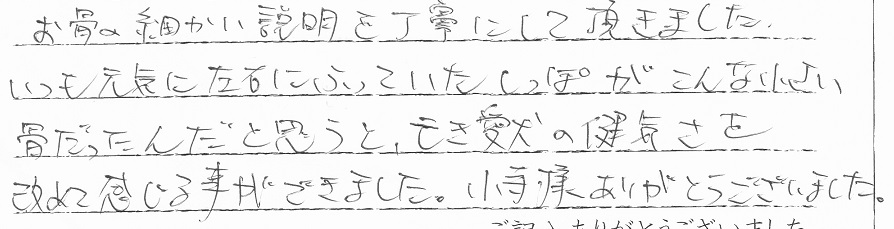 お骨の細かい説明を丁寧にして頂きました。
いつも元気に左右にふっていたしっぽがこんな小さい
骨だったんだと思うと、亡き愛犬の健気さを
改めて感じる事ができました。小寺様ありがとうございました。
ご記入ありがとうございました